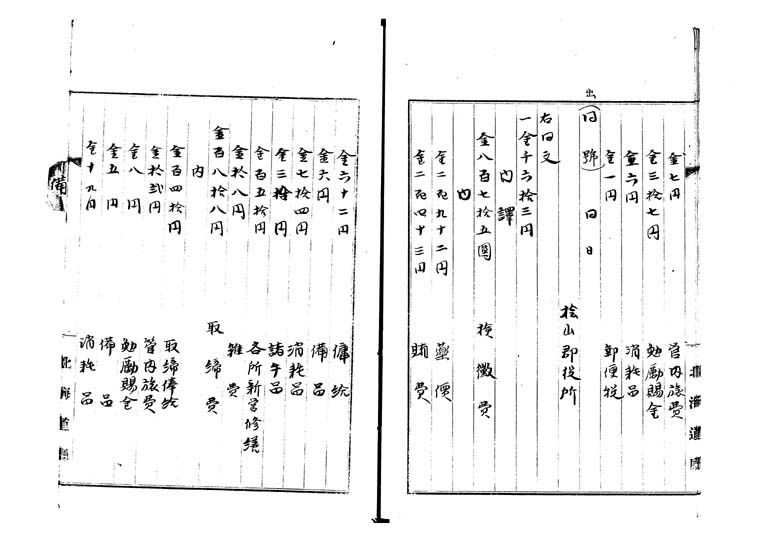 金七円 管内旅費
金三拾七円 勉励賜金
金六円 消耗品
金一円 郵便税
出
(同號) 同日
右同文 桧山郡役所
一金千六拾三円
内譯
金八百七拾五圓 検黴費
内
金二百九十二円 薬價
金二百四十三円 賄費
金六十二円 傭給
金六円 備品
金七拾四円 消耗品
金三拾円 諸手当
金百五拾円 各所新営修繕
金拾八円 雑費
金百八拾八円 取締費
内
金百四拾円 取締俸給
金拾弐円 管内旅費
金八円 勉励賜金
金五円 備品
金十九円 消耗品
備
北海道廳